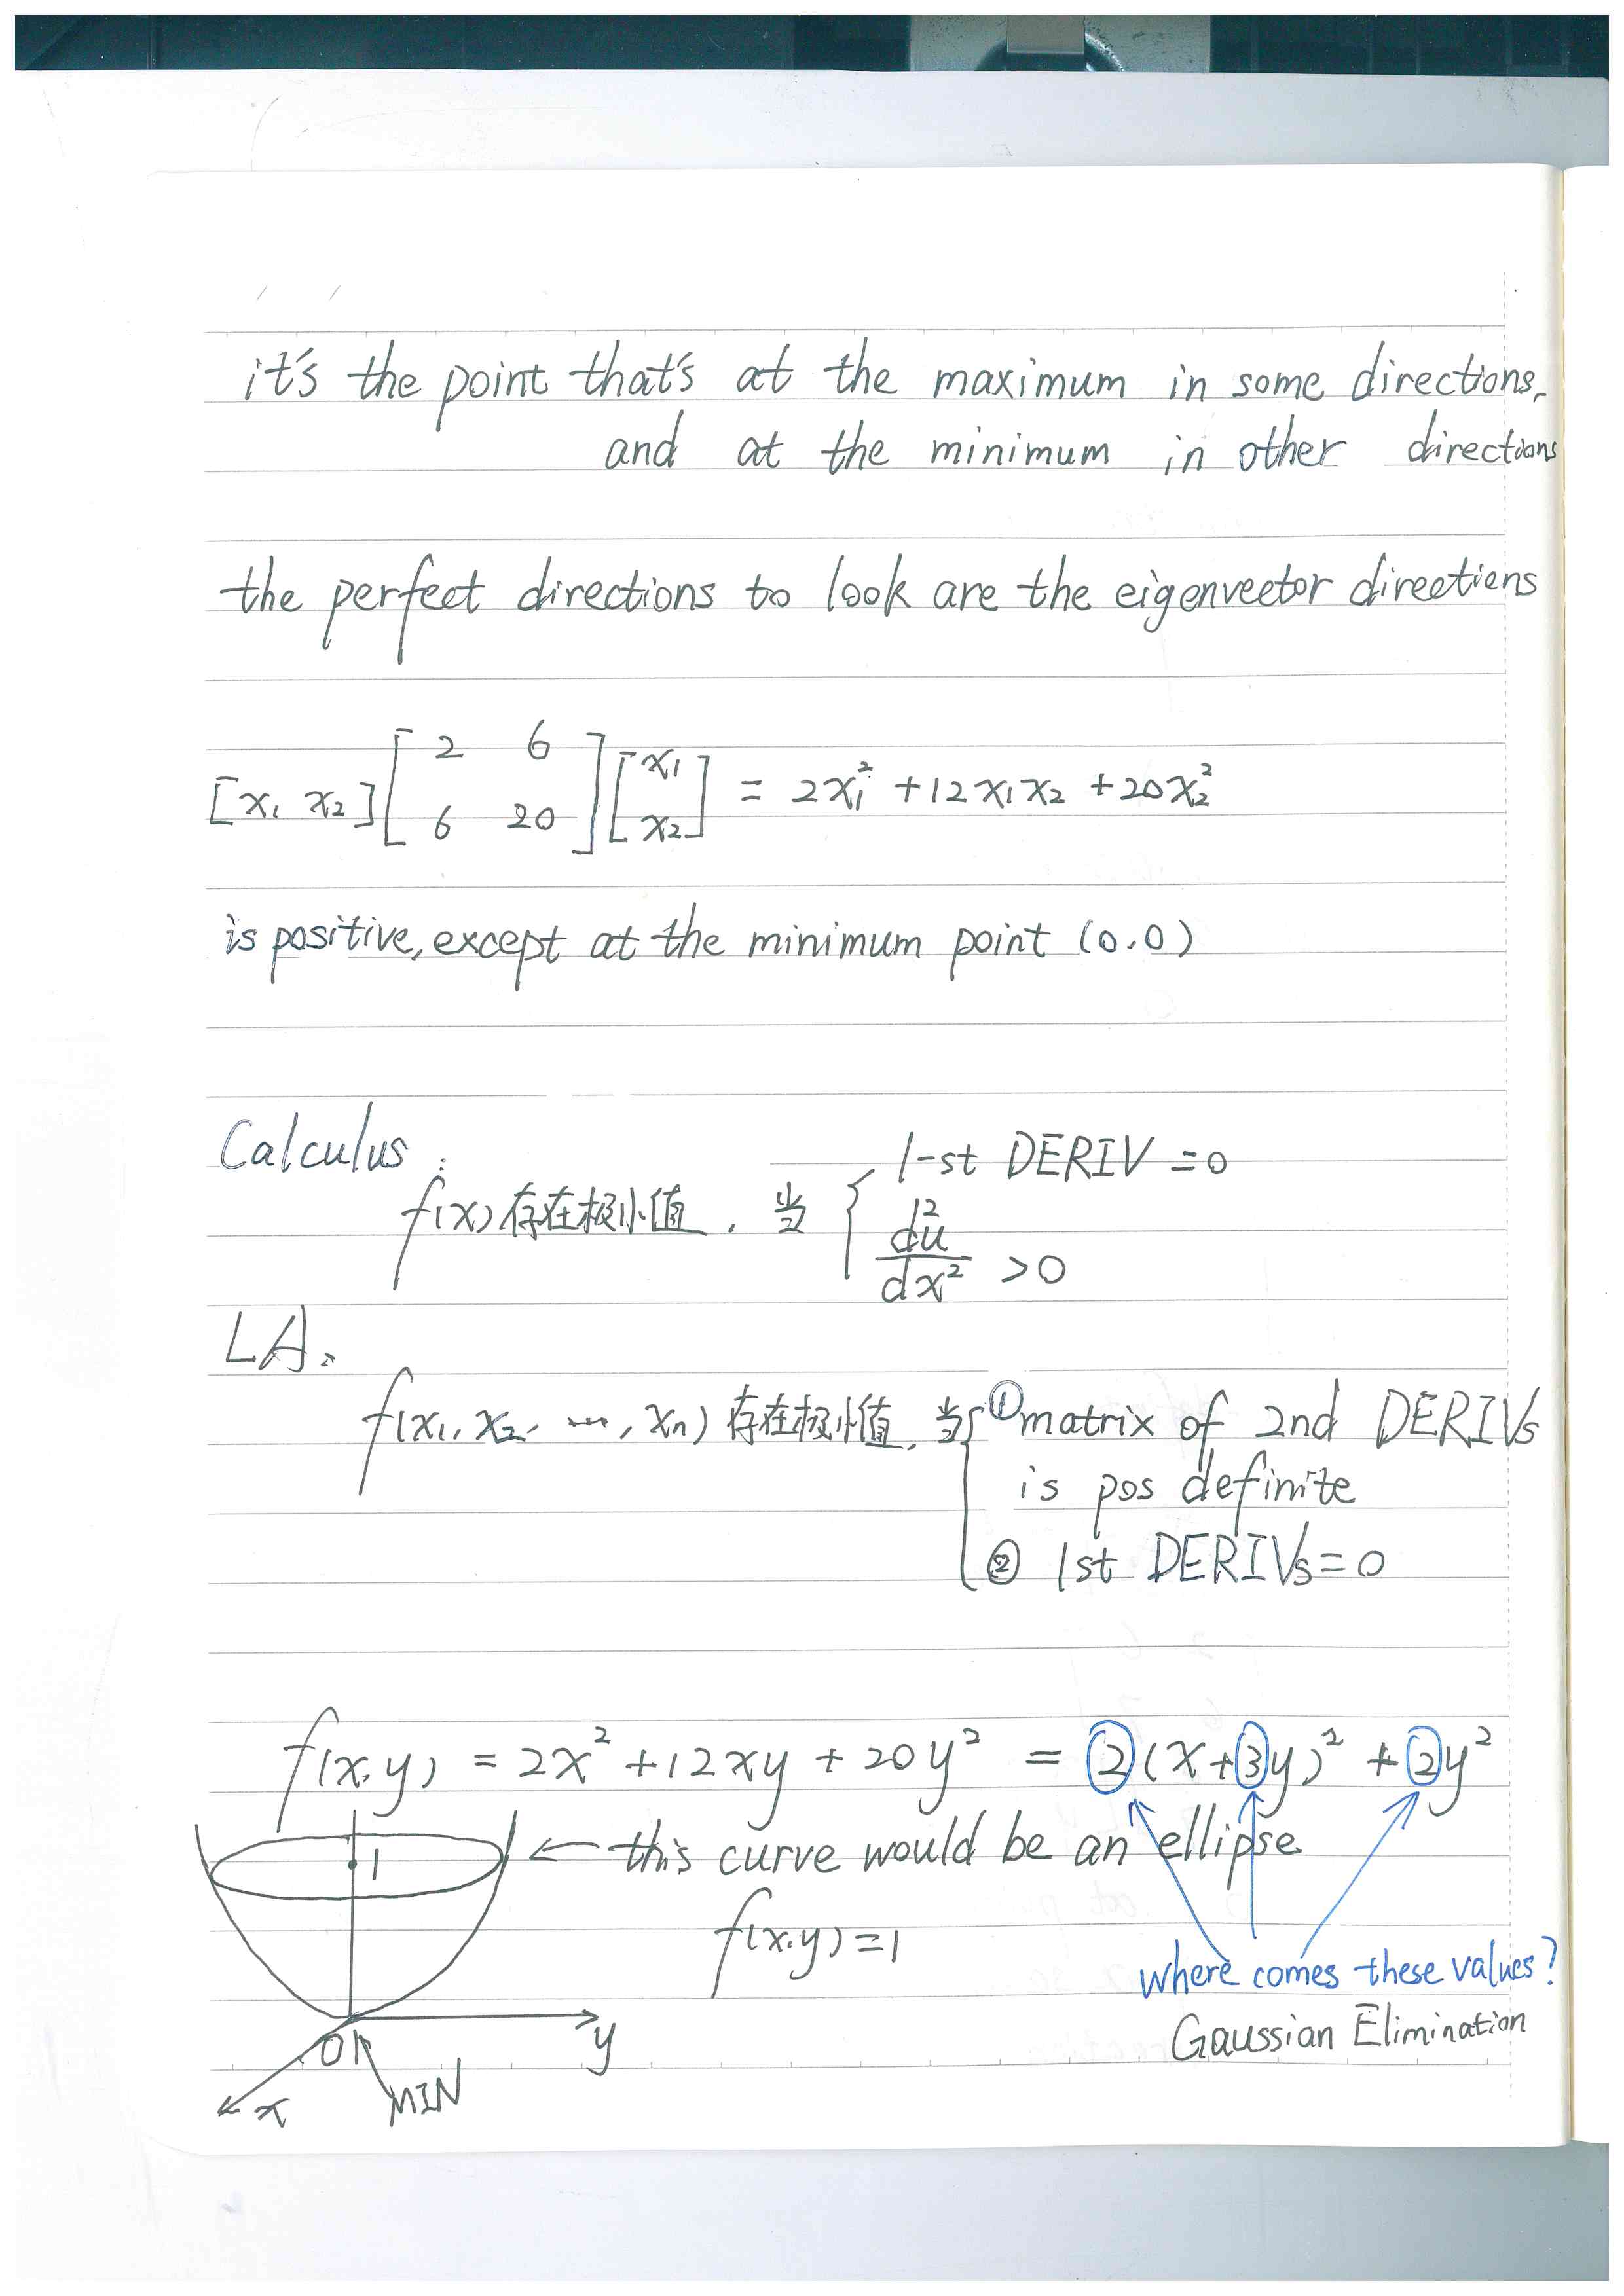 it's the point that's at the maximum in some directions,
and at the minimum in other directions
the perfect directions to look are the eigenvector directions
[x₁ x₂] [2 6; 6 20] [x₁; x₂] = 2x₁² + 12x₁x₂ + 20x₂²
is positive, except at the minimum point (0,0)
Calculus:
f(x)存在极小值, 当 { 1-st DERIV = 0
d²u/dx² > 0
LA.
f(x₁, x₂, ..., xₙ) 存在极小值, 当 { ① matrix of 2nd DERIVs
is pos definite
② 1st DERIVs = 0
f(x,y) = 2x² + 12xy + 20y² = 2(x+3y)² + 2y²
1 ← this curve would be an ellipse
f(x,y) = 1
where comes these values?
Gaussian Elimination
0 y
x MIN